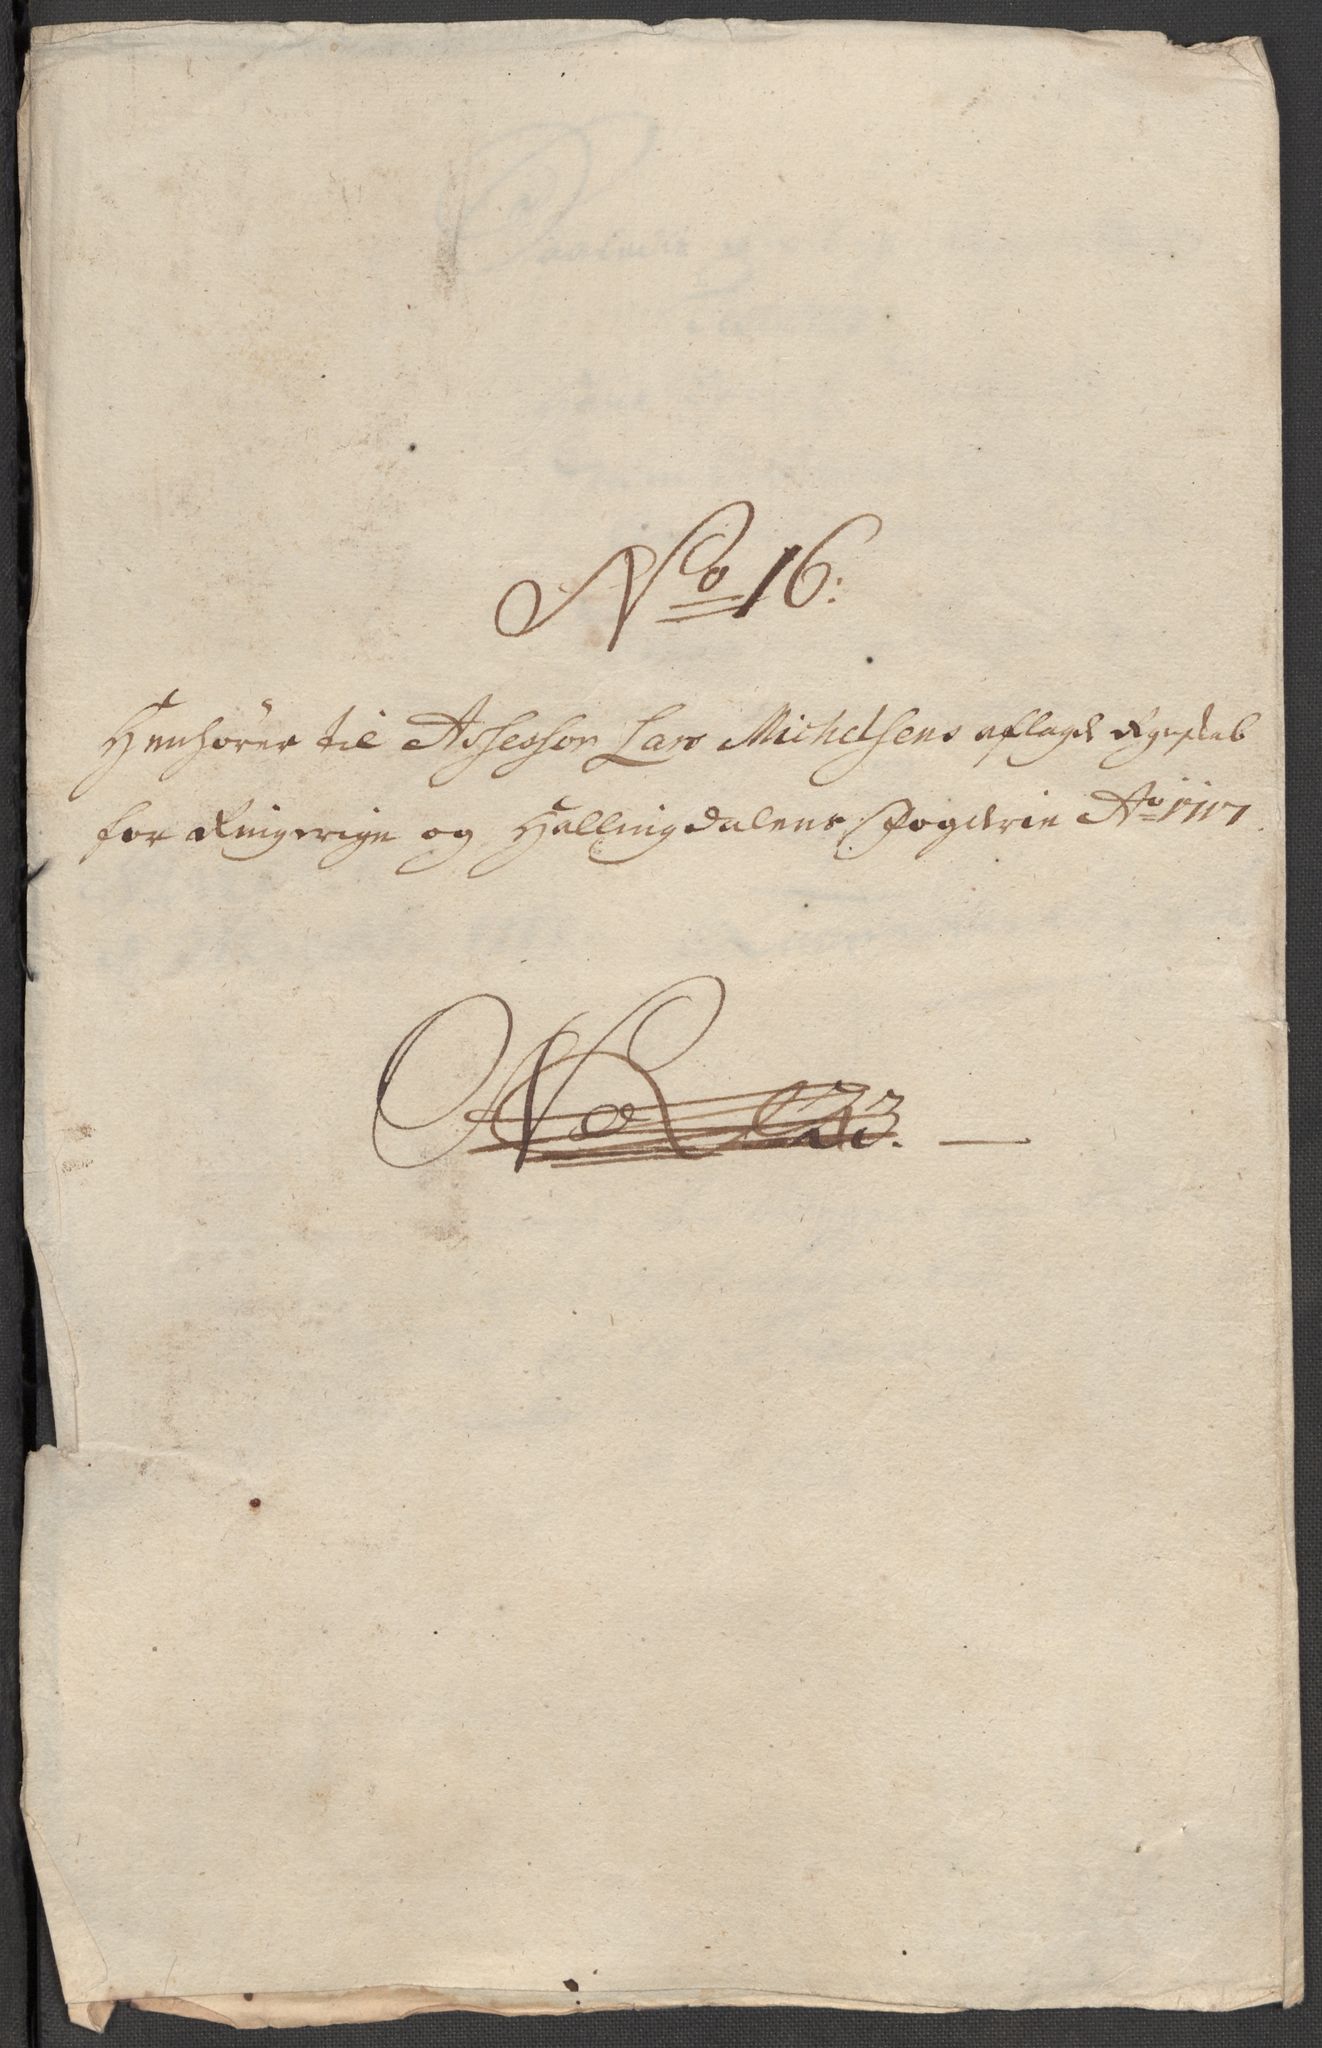 No 16:
Henhører til Assessor Lars Michelsens aflagde Regnskab
for Ringerige og Hallingdalens Fogderie Ao 1717
No 33. —